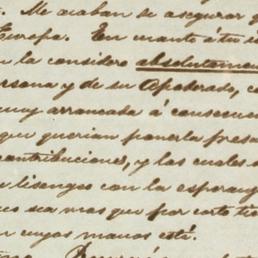 Me acaban de asegurar q
Europa. En cuanto á tu i
n la considero absolutamen
ersona y de su Apoderado, c
muy arrancada á consecuen
que querian ponerla presa
contribuciones, y las cuales
lisongeo con la esperan
sea mas que por corto tie
n cuyas manos esté.